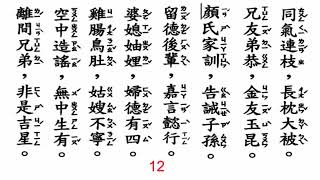 同氣連枝，長枕大被。
兄友弟恭，金友玉昆。
顏氏家訓，告誡子孫。
留德後輩，嘉言懿行。
婆媳妯娌，婦德有四。
雞腸鳥肚，姑嫂不寧。
空中造謠，無中生有。
離間兄弟，非是吉星。
12